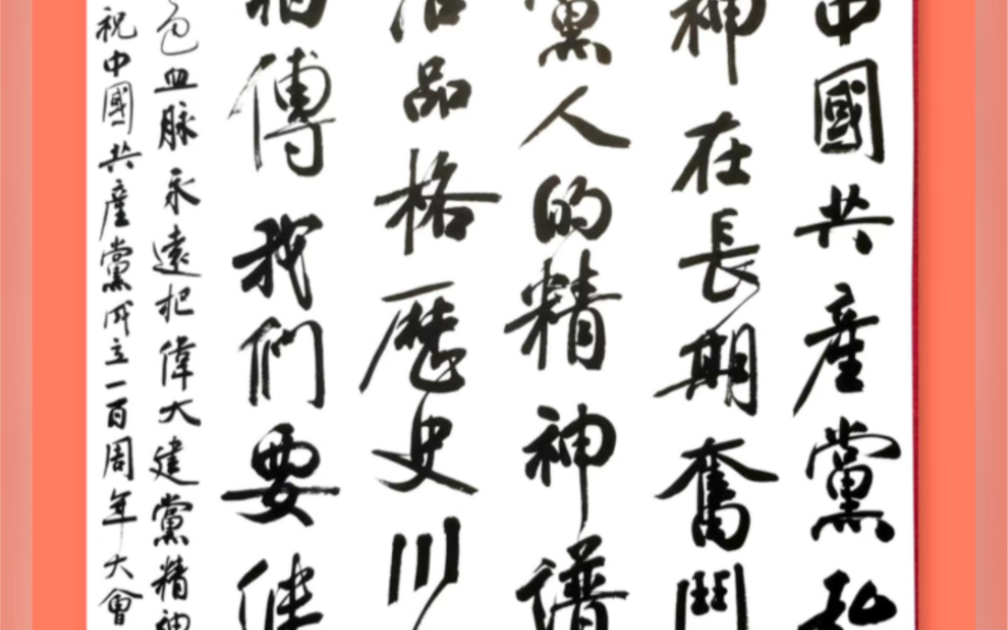 中國共產黨弘
神在長期奮鬥
黨人的精神譜
品格歷史川
傳我們要繼
色血脈永遠把偉大建黨精神
祝中國共產黨成立一百周年大會